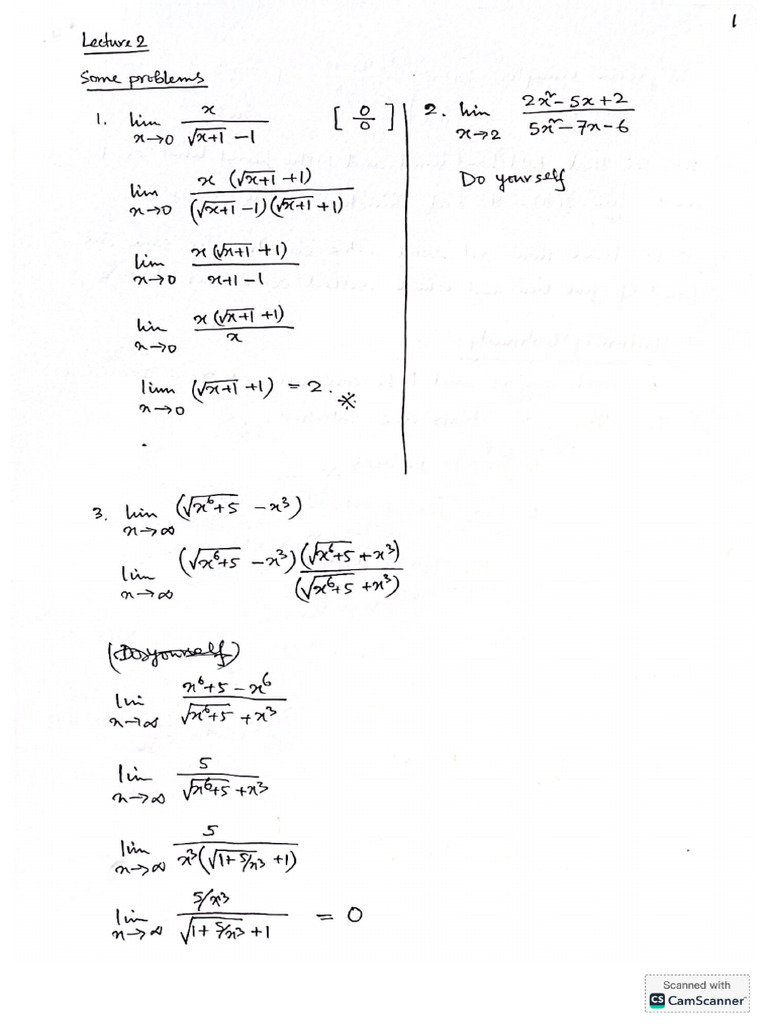 1
Lecture 2
Some problems
1. lim x→0 x/(√(x+1) -1) [0/0]
lim x→0 x(√(x+1) +1)/((√(x+1) -1)(√(x+1) +1))
lim x→0 x(√(x+1) +1)/(x+1-1)
lim x→0 x(√(x+1) +1)/x
lim x→0 (√(x+1) +1) = 2. ※
2. lim x→2 (2x²-5x+2)/(5x²-7x-6)
Do yourself
3. lim x→∞ (√(x⁶+5) - x³)
lim x→∞ (√(x⁶+5) - x³)(√(x⁶+5) + x³)/(√(x⁶+5) + x³)
(Do yourself)
lim x→∞ (x⁶+5-x⁶)/(√(x⁶+5) + x³)
lim x→∞ 5/(√(x⁶+5) + x³)
lim x→∞ 5/(x³(√(1+5/x³) +1))
lim x→∞ (5/x³)/(√(1+5/x³) +1) = 0
Scanned with
CS CamScanner